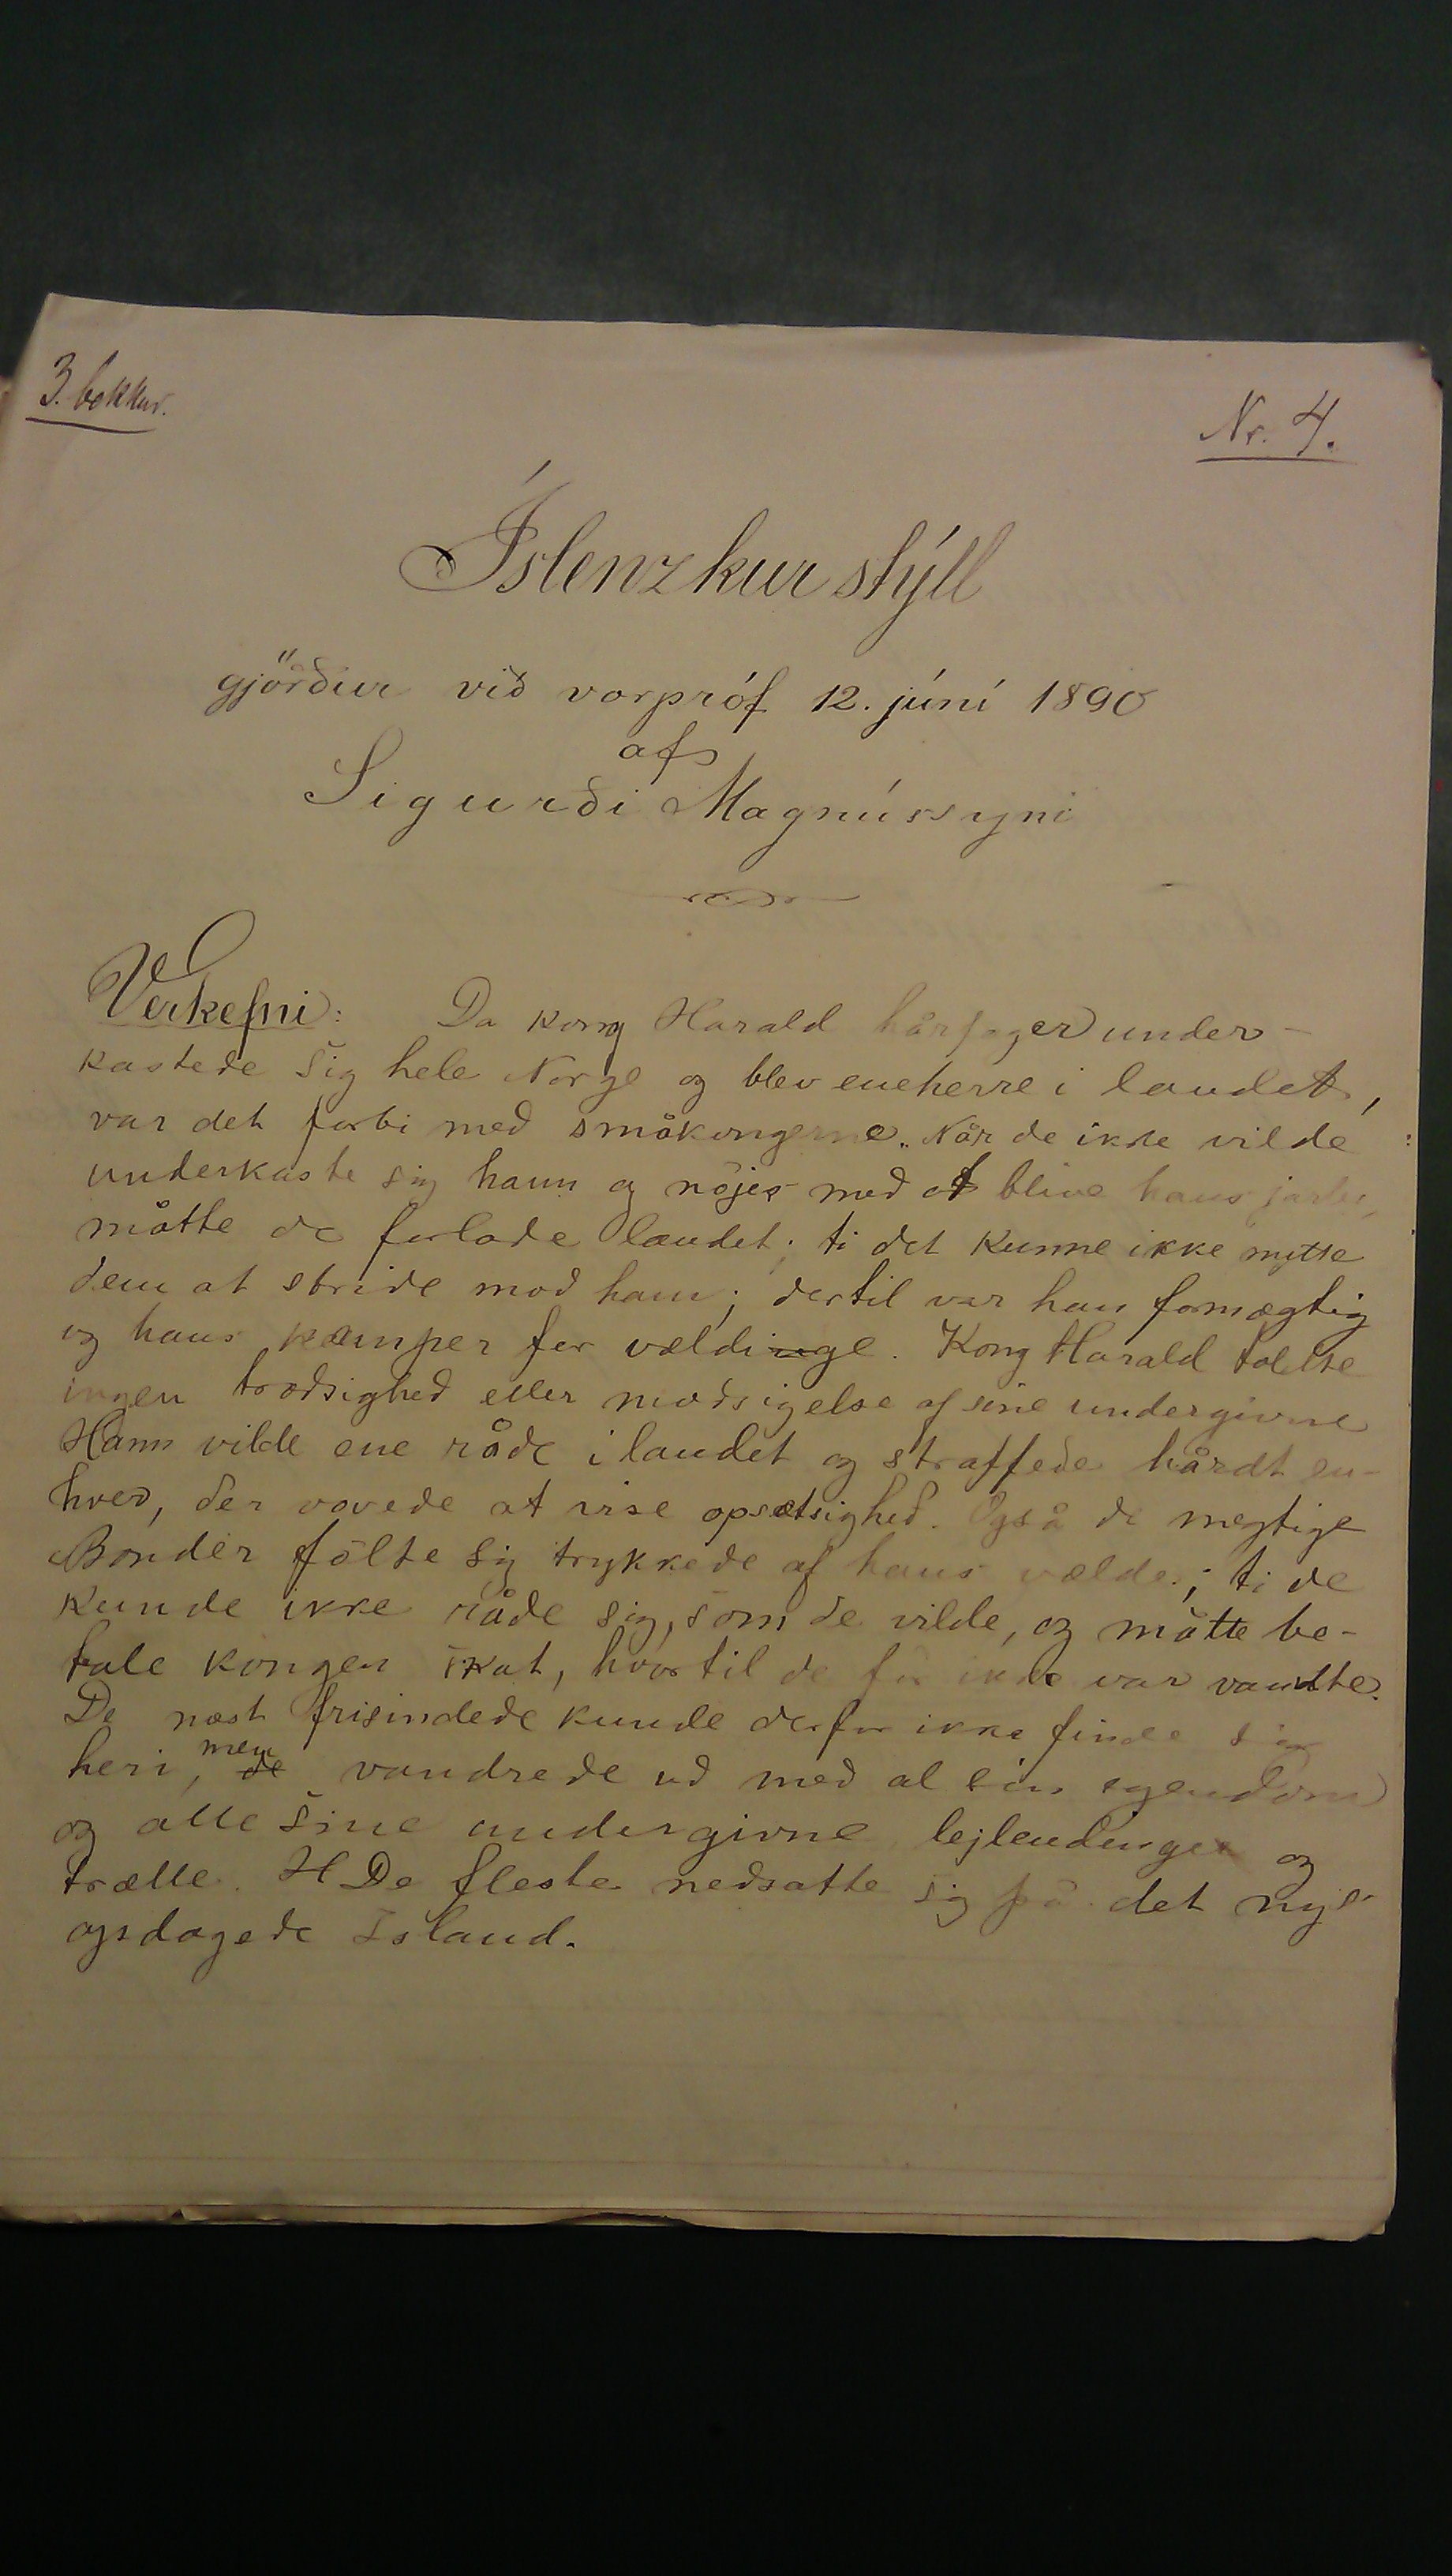 3. bekkur.
Nr. 4.
Íslenzkur stýll
gjörður við vorpróf 12. júní 1890
af
Sigurði Magnússyni
Verkefni: Da kong Harald hårfager under-
kastede sig hele Norge og blev eneherre i landet,
var det forbi med småkongerne. Når de ikke vilde
underkaste sig hann og nöjes med at blive hans jarler,
måtte de forlade landet; ti det kunne ikke nytte
dem at stride mod ham; dertil var han formægtig
og hans kæmper for vældige. Kong Harald tålte
ingen trodsighed eller modsigelse af sine undergivne
Hann vilde ene råde i landet og straffede hårdt en-
hver, der vovede at vise opsætsighed. Også de megtige
Bönder fölte sig trykkede af hans vælde; ti de
kunde ikke råde sig, som de vilde, og måtte be-
tale kongen skat, hvortil de för ikke var vandte.
De mest frisindede kunde derfor ikke finde sig
heri, men de vandrede ud med al sin egendom
og alle sine undergivne lejlendinger og
trælle. H De fleste nedsatte sig på det nys
opdagede Island.